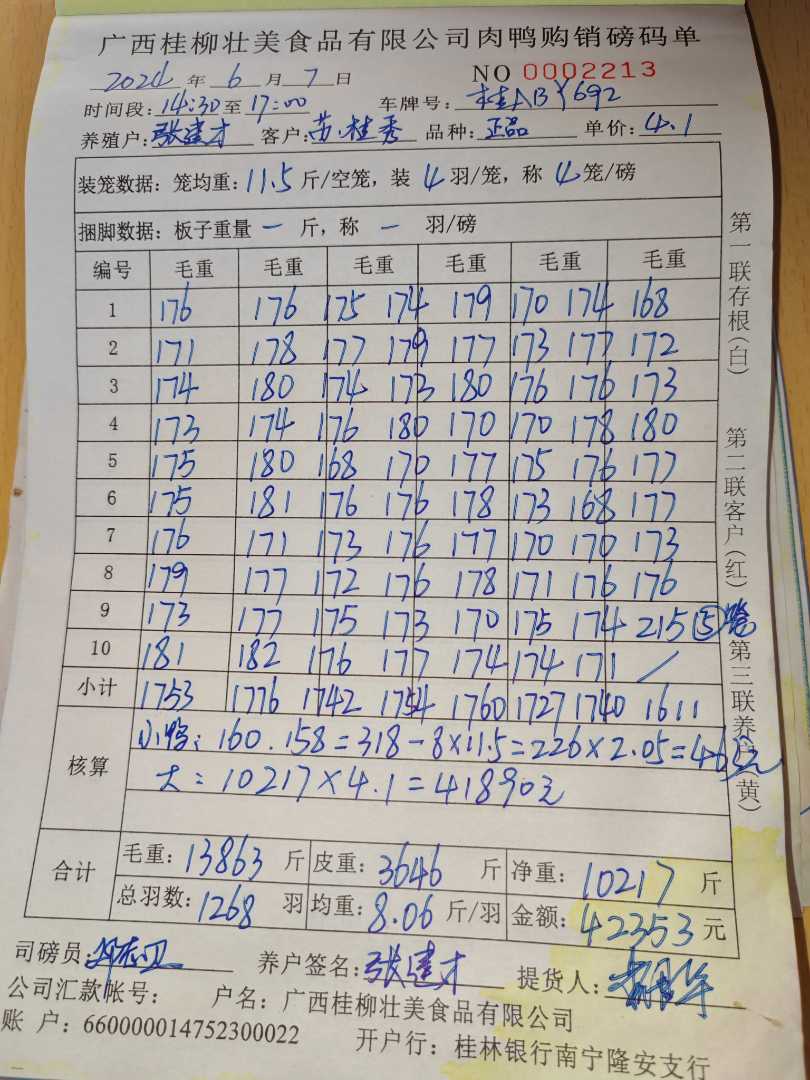 广西桂柳壮美食品有限公司肉鸭购销磅码单
2024 年 6 月 7 日 NO 0002213
时间段: 14:30 至 17:00 车牌号: 桂ABY692
养殖户: 张建才 客户: 苏桂秀 品种: 正品 单价: 4.1
装笼数据: 笼均重: 11.5 斤/空笼, 装 4 羽/笼, 称 4 笼/磅
捆脚数据: 板子重量 一 斤, 称 一 羽/磅
编号 毛重 毛重 毛重 毛重 毛重 毛重
1 176 176 175 174 179 170 174 168
2 171 178 177 179 177 173 177 172
3 174 180 174 173 180 176 176 173
4 173 174 176 180 170 170 178 180
5 175 180 168 170 177 175 176 177
6 175 181 176 176 178 173 168 177
7 176 171 173 176 177 170 170 173
8 179 177 172 176 178 171 176 176
9 173 177 175 173 170 175 174 215 ⑤笼
10 181 182 176 177 174 174 171 /
小计 1753 1776 1742 1754 1760 1727 1740 1611
核算 小鸭: 160.158=318-8×11.5=226×2.05=463元
大: 10217×4.1=41890元
合计 毛重: 13863 斤 皮重: 3646 斤 净重: 10217 斤
总羽数: 1268 羽 均重: 8.06 斤/羽 金额: 42353 元
司磅员: 养户签名: 张建才 提货人:
公司汇款帐号: 户名: 广西桂柳壮美食品有限公司
账 户: 660000014752300022 开户行: 桂林银行南宁隆安支行
第一联存根(白) 第二联客户(红) 第三联养户(黄)